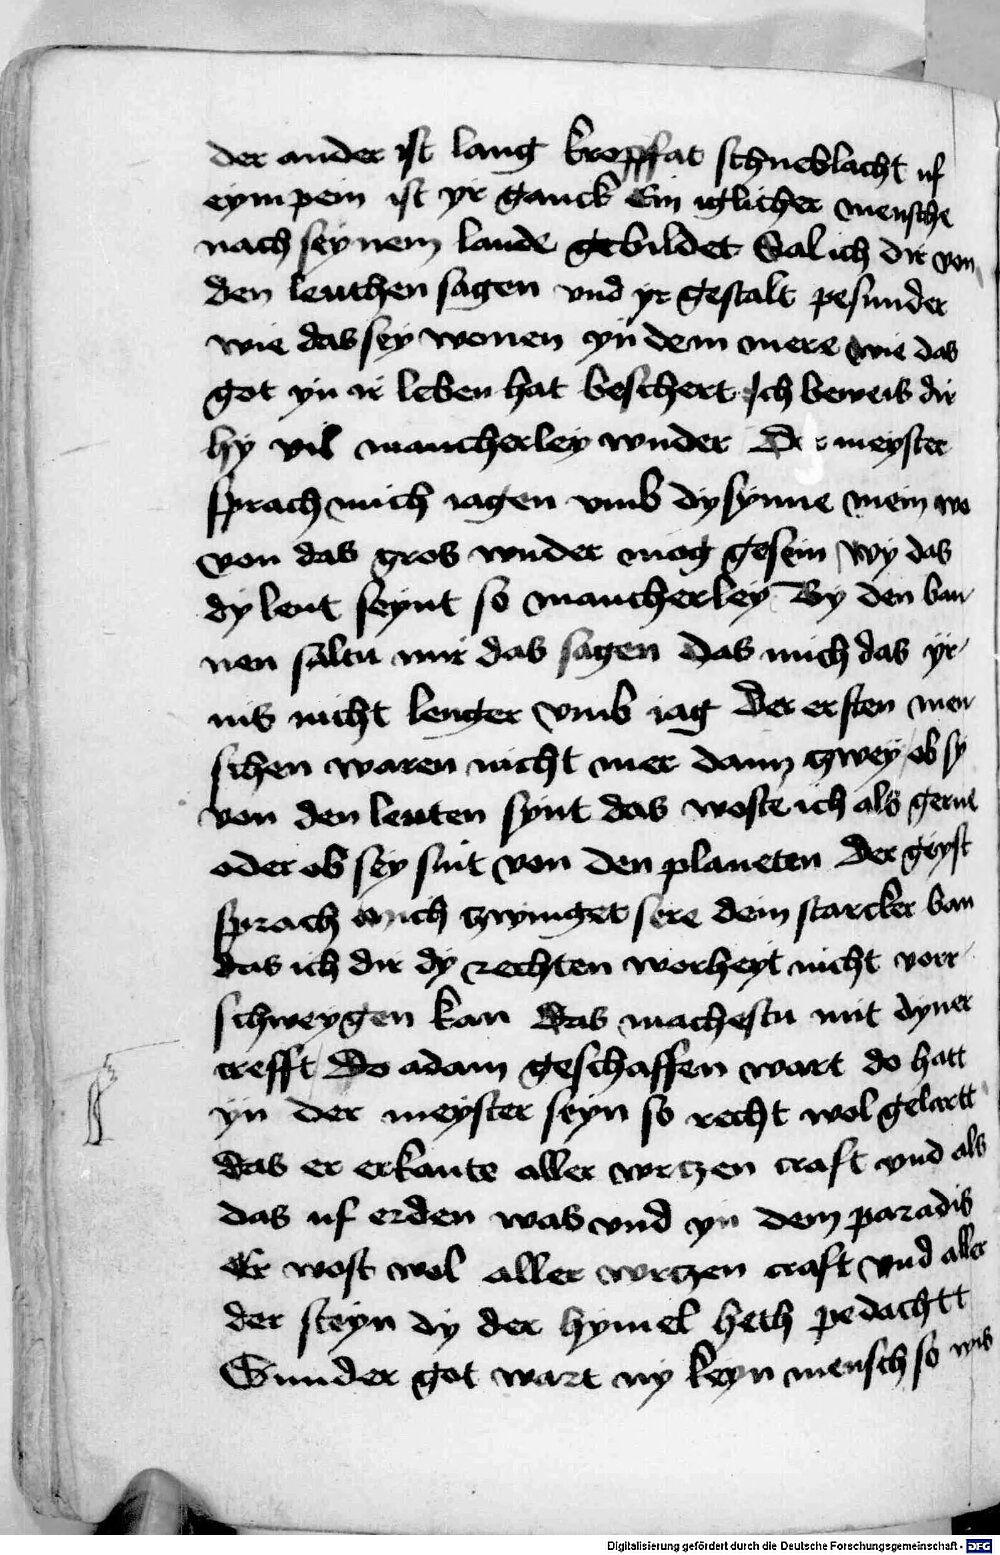 der ander ist lang kropffat schneblacht uf
eym pein ist yr ganck Ein iglicher mensche
nach seynem lande gebildet Sal ich dir von
den leuthen sagen vnd yr gestalt pesunder
wie das sey wonen yn dem mere wie das
got yn ir leben hat beschert Ich beweis dir
hy vil mancherley wnder Der meyster
sprach mich iagen vmb dy synne mein wo
von das gros wnder mög gesein Wy das
dy leut seynt so mancherley By den ban
nen saltu mir das sagen Das mich das yr
nis nicht lenger vmb iag Der ersten men
schen waren nicht mer dann czwey ob sy
von den leuten synt das woste ich als gerne
oder ob sey sint von den planeten Der geyst
sprach mich czwinget sere dein starcker ban
das ich dir dy rechten worheyt nicht vorr
schweygen kan Das machestu mit dyner
crefft Do adam geschaffen wart do hatt
yn der meyster seyn so recht wol gelartt
Das er erkante aller wrczen craft vnd als
das uf erden was vnd yn dem paradis
Er wost wol aller wrczen craft vnd aller
der steyn dy der hymel heth pedachtt
Sunder got wart ny keyn mensch so wis
Digitalisierung gefördert durch die Deutsche Forschungsgemeinschaft - DFG